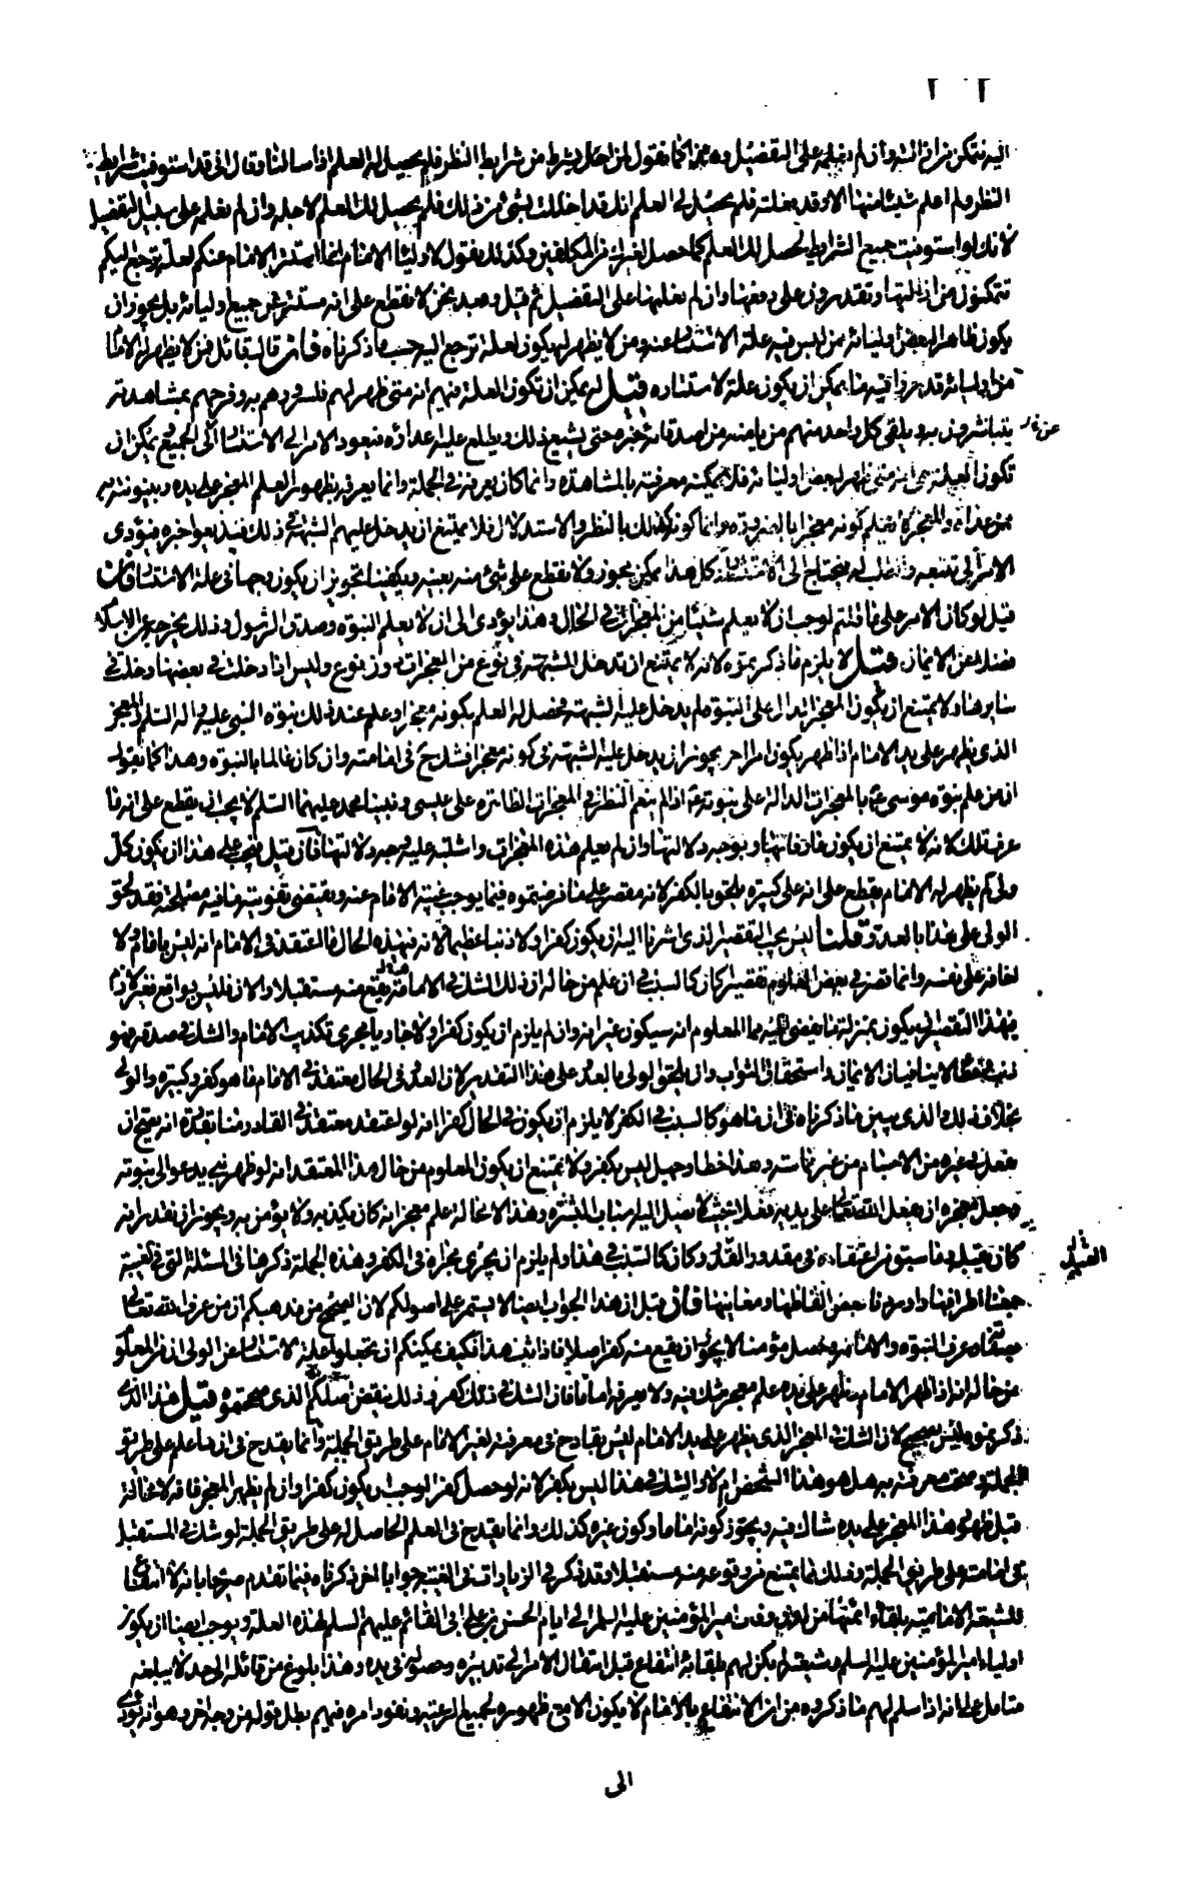 اليه فتمكن من ازالته وان لم يعلمه على التفضيل وهذا كما نقول لمن اخل بشرط من شرايط النظر فلم يحصل له العلم اذا سألنا وقال انى قد استوفيت شرايط
النظر ولم اعلم شيئا منها الا وقد فعلته فلم يحصل لى العلم انك قد اخللت بشئ من ذلك فلم يحصل لك العلم لاجله وان لم نعلمه على سبيل التفضيل
لانك لو استوفيت جميع الشرايط لحصل لك العلم كما حصل لغيرك من المكلفين وكذلك نقول لاولياء الامام انما استتر الامام عنكم لعلة ترجع اليكم
تتمكنون من ازالتها وتقدرون على رفعها وان لم نعلمها على التفضيل ثم قيل وبعد نحن لا نقطع على انه مستتر عن جميع اوليائه بل يجوز ان
يكون ظاهرا لبعض اوليائه ممن ليس فيه علة الاستتار عنه ومن لا يظهر له يكون لعلة ترجع اليه حسب ما ذكرناه فان قال قائل فمن لا يظهر له الامام
من اوليائه قد يمكن ان يكون علة لاستتاره قيل له يمكن ان تكون العلة فيهم انه متى ظهر لهم فلسرورهم به وفرحهم بمشاهدته
يتباشرون به ويلقى كل واحد منهم من يأمنه من اصدقائه خبره حتى يشيع ذلك ويطلع عليه اعداؤه فيعود الامر الى الاستتار الى الجميع يمكن ان
تكون العلة انه متى ظهر لبعض اوليائه فلا يمكنه معرفته بالمشاهدة وانما كان يعرفه فى الجملة وانما يعرفه بظهور العلم المعجز على يده
والمعجز لا يعلم كونه معجزا بالضرورة وانما كذلك بالنظر والاستدلال فلا يمتنع ان يدخل عليهم الشبهة فى ذلك
الامر الى تتبعه وطلبه فيحتاج الى الاستتار كل هذا ممكن مجوز ولا نقطع على شئ منه بعينه ويكفينا تجويز ان يكون وجها فى علة الاستتار فان
قيل لو كان الامر على ما قلتم لوجب ان لا يعلم شيئا من المعجزات فى الحال وهذا يؤدى الى ان لا يعلم النبوة وصدق الرسول وذلك يخرجه عن الاسلام
فضلا عن الايمان قيل لا يلزم ما ذكرتموه لانه لا يمتنع ان تدخل الشبهة فى نوع من المعجزات دون نوع وليس اذا دخلت فى بعضها دخلت فى
سايرها ولا يمتنع ان يكون المعجز الدال على النبوة لم يدخل عليه الشبهة فحصل له العلم بكونه معجزا وعلم عند ذلك نبوة النبى عليه واله السلم والمعجز
الذى يظهر على يد الامام اذا ظهر يكون امرا اخر يجوز ان يدخل عليه الشبهة فى كونه معجزا فشك فى امامته وان كان عالما بالنبوة وهذا كما نقول
ان من علم نبوة موسى بالمعجزات الدالة على نبوته اذا لم ينعم النظر فى المعجزات الظاهرة على عيسى ونبينا محمد عليهما السلم لا يجب ان يقطع على انه ما
عرف تلك لانه لا يمتنع ان يكون عارفا بها وبوجه دلالتها وان لم يعلم هذه المعجزات واشتبه عليه وجه دلالتها فان قيل فيجب على هذا ان يكون كل
ولى لم يظهر له الامام يقطع على انه على كبيرة يلحق بالكفر لانه مقصر على ما فرضتموه فيما يوجب غيبة الامام عنه ويقتضى تفويته ما فيه مصلحته فقد لحق
الولى على هذا بالعدو قلنا ليس يجب التقصير الذى اشرنا اليه ان يكون كفرا ولا ذنبا عظيما لانه فى هذه الحال ما اعتقد فى الامام انه ليس بامام ولا
اخافه على نفسه وانما قصر فى بعض العلوم تقصيرا كان كالسبب فى ان علم من حاله ان ذلك الشك فى الامامة يقع منه مستقبلا والان فليس بواقع
فهذا التقصير يكون بمنزلة ما يفضى اليه مما المعلوم انه سيكون غير انه وان لم يلزم ان يكون كفرا ولا جاريا مجرى تكذيب الامام والشك فى صدقه فهو
ذنب وخطأ لا ينافيان الايمان واستحقاق الثواب وان لم يلحق الولى بالعدو على هذا التقدير لان العدو فى الحال معتقد فى الامام ما هو كفر وكبيرة والولى
بخلاف ذلك والذى يبين ما ذكرناه فى ان ما هو كالسبب فى الكفر لا يلزم ان يكون فى الحال كفرا انه لو اعتقد معتقد فى القادر منا بقدرة انه يصح ان
يفعل فى غيره من الاجسام من غير مماسة وهذا خطأ وجهل ليس بكفر ولا يمتنع ان يكون المعلوم من حال هذا المعتقد انه لو ظهر نبى يدعو الى نبوته
وجعل معجزه ان يفعل الله تعالى على يديه فعلا بحيث لا يصل اليه اسباب البشر وهذا لا محالة علم معجز انه كان يكذبه ولا يؤمن به ويجوز ان يقدر انه
كان يقتله وما سبق من اعتقاده فى مقدور القادر كان كالسبب فى هذا ولم يلزم ان يجرى مجراه فى الكفر وهذه الجملة ذكرها فى المسئلة التى فى الغيبة
جمعنا اطرافها واوردنا بعض الفاظها ومعانيها فان قيل ان هذا الجواب ايضا لا يستمر على اصولكم لان الصحيح من مذهبكم ان من عرف الله تعالى
بصفاته وعرف النبوة والامامة وحصل مؤمنا لا يجوز ان يقع منه كفر اصلا فاذا ثبت هذا فكيف يمكنكم ان تجعلوا علة الاستتار عن الولى ان المعلوم
من حاله انه اذا ظهر الامام يظهر على يده علم معجز شك فيه ولا يعرفه اماما فان الشك فى ذلك كفر وذلك ينقض اصلكم الذى صححتموه قيل هذا الذى
ذكرتموه ليس بصحيح لان الشك فى المعجز الذى يظهر على يد الامام ليس بقادح فى معرفته لعين الامام على طريق الجملة وانما يقدح فى ان ما علم على طريق
الجملة وصحت معرفته به هل هو هذا الشخص ام لا والشك فى هذا ليس بكفر لانه لو حصل كفرا لوجب ان يكون كفرا وان لم يظهر المعجز فانه لا محالة
قبل ظهور هذا المعجز على يده شاك فيه ويجوز كونه اماما وكون غيره كذلك وانما يقدح فى العلم الحاصل له على طريق الجملة لو شك فى المستقبل
فى امامته على طريق الجملة وذلك مما يمتنع من وقوعه منه مستقبلا وقد ذكر فى الزيادات فى الغيبة جوابا لمن ذكرناه فيما تقدم
للشيعة الامامية بلقاء ائمتها من لدن وفات امير المؤمنين عليه السلم الى ايام الحسن بن على الى القائم عليهم السلم لهذه العلة ويوجب ايضا ان يكون
اولياء امير المؤمنين عليه السلم وشيعته لم يكن لهم بلقائه انتفاع قبل انتقال الامر الى تدبيره وحصوله فى يده وهذا بلوغ من قائله الى حد لا يبلغه
متامل على انه اذا سلم لهم ما ذكروه من ان الانتفاع بالامام لا يكون الا مع ظهوره لجميع الرعية ونفوذ امره فيهم بطل قوله من وجه اخر وهو انه يؤدى
الى